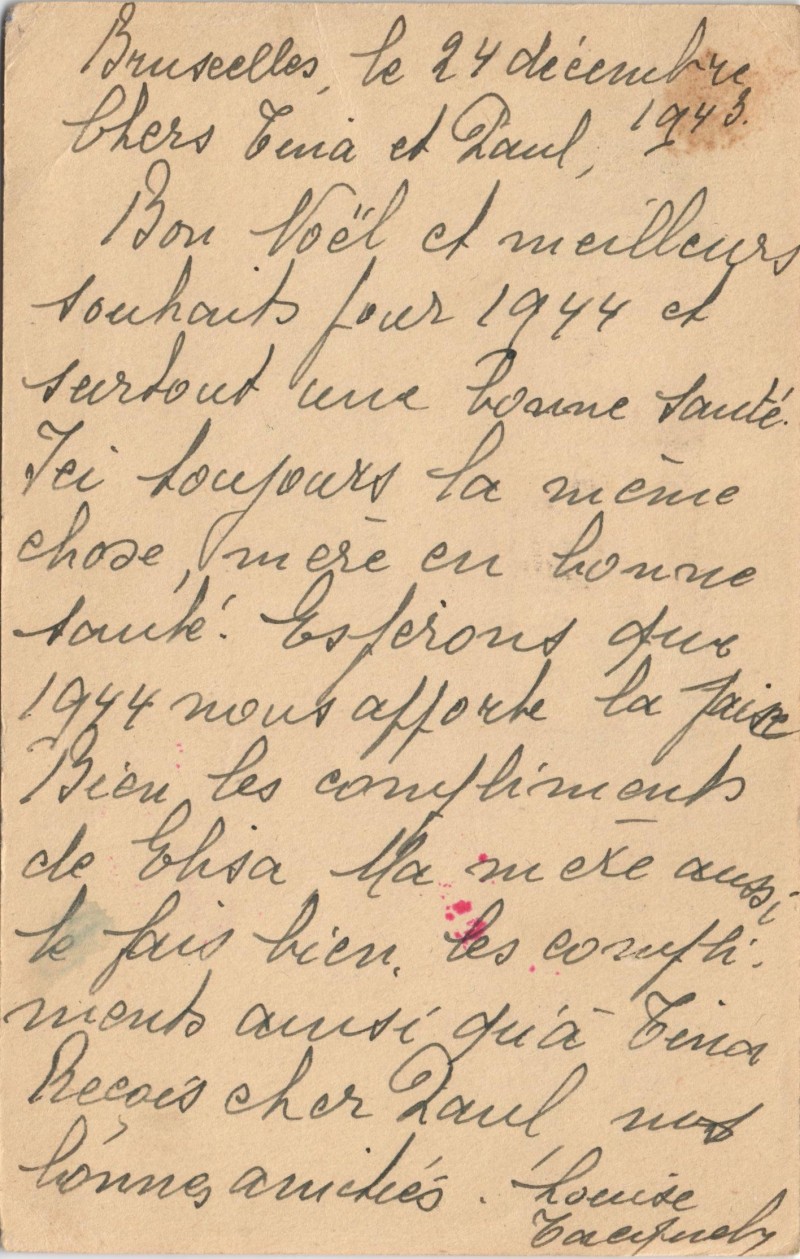 Bruxelles, le 24 décembre
1943.
Chers Tina et Paul,
Bon Noël et meilleurs
souhaits pour 1944 et
surtout une bonne santé.
Ici toujours la même
chose, mère en bonne
santé. Espérons que
1944 nous apporte la paix
Bien les compliments
de Elisa Ma mère aussi
te fais bien les compli-
ments ainsi qu'à Tina
Reçois cher Paul nos
bonnes amitiés. Louise